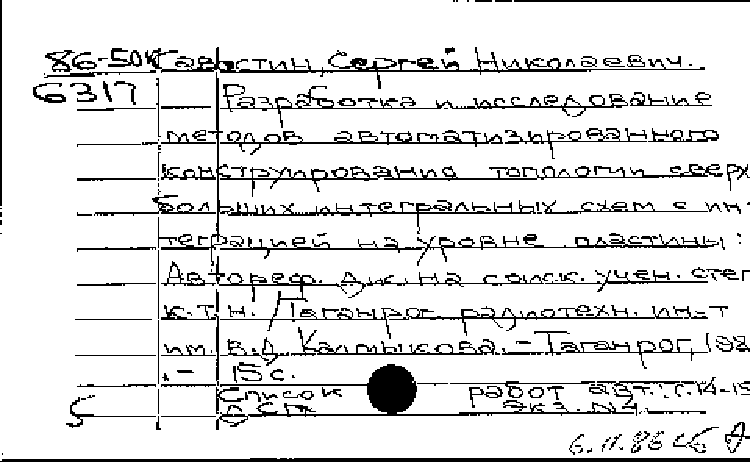 86-50к Савостин, Сергей Николаевич.
6317 Разработка и исследование
методов автоматизированного
конструирования топологии сверх
больших интегральных схем с ин-
теграцией на уровне пластины:
Автореф. д.к. на соиск. учен. степ
к.т.н. Таганрог радиотехн. ин-т
им. В.Д. Калмыкова. - Таганрог, 198
.- 15 с.
Список работ авт.: с.14-15
5 ДСП Экз. N4.
6.11.86